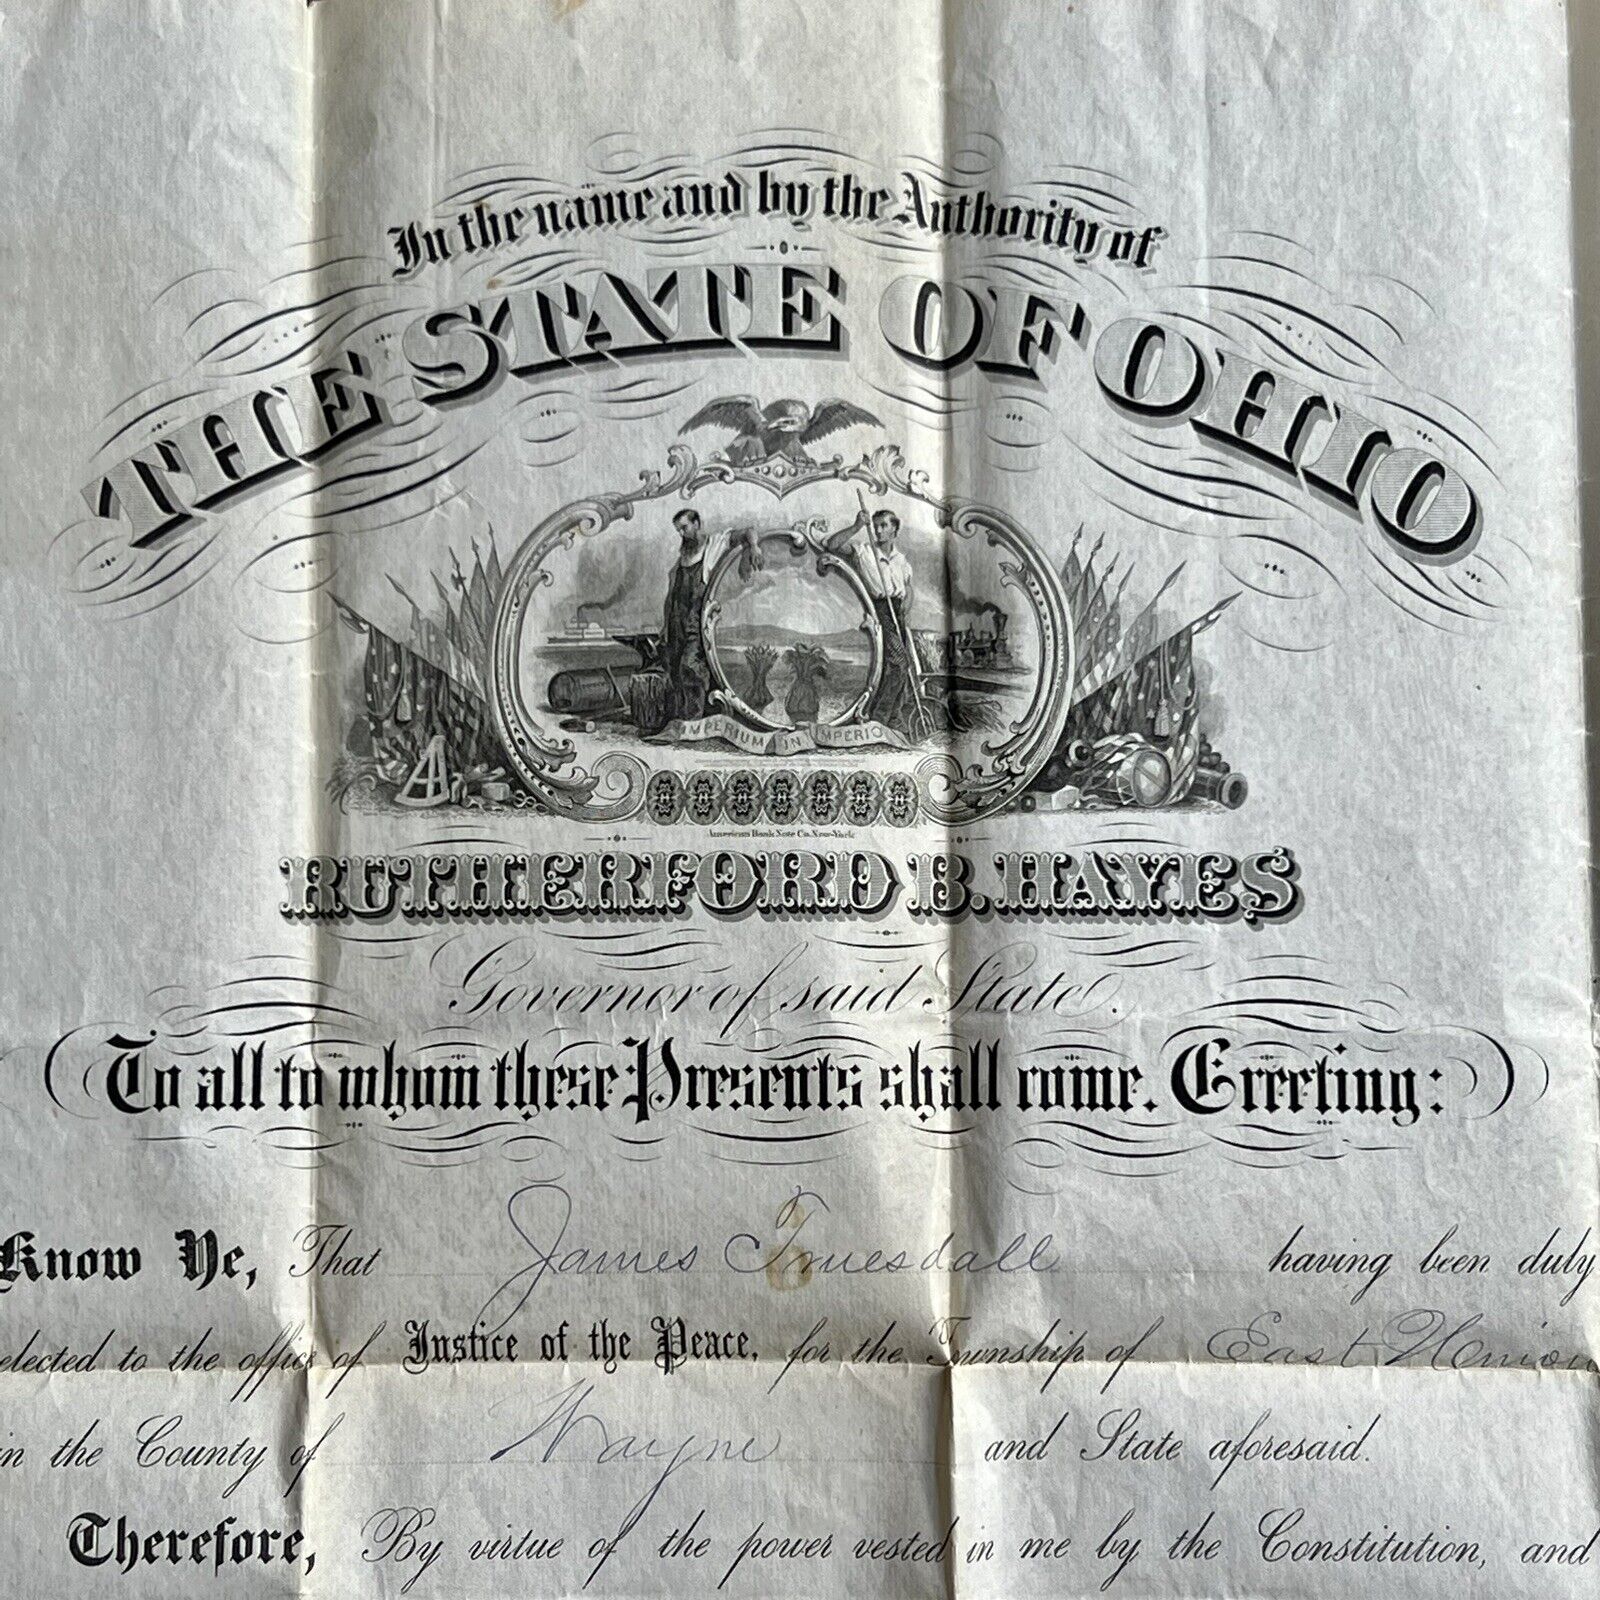 In the name and by the Authority of
THE STATE OF OHIO
IMPERIUM IN IMPERIO
American Bank Note Co. New-York
RUTHERFORD B. HAYES
Governor of said State.
To all to whom these Presents shall come. Greeting:
Know Ye, That James Truesdall having been duly
elected to the office of Justice of the Peace, for the Township of East Union
in the County of Wayne and State aforesaid.
Therefore, By virtue of the power vested in me by the Constitution, and